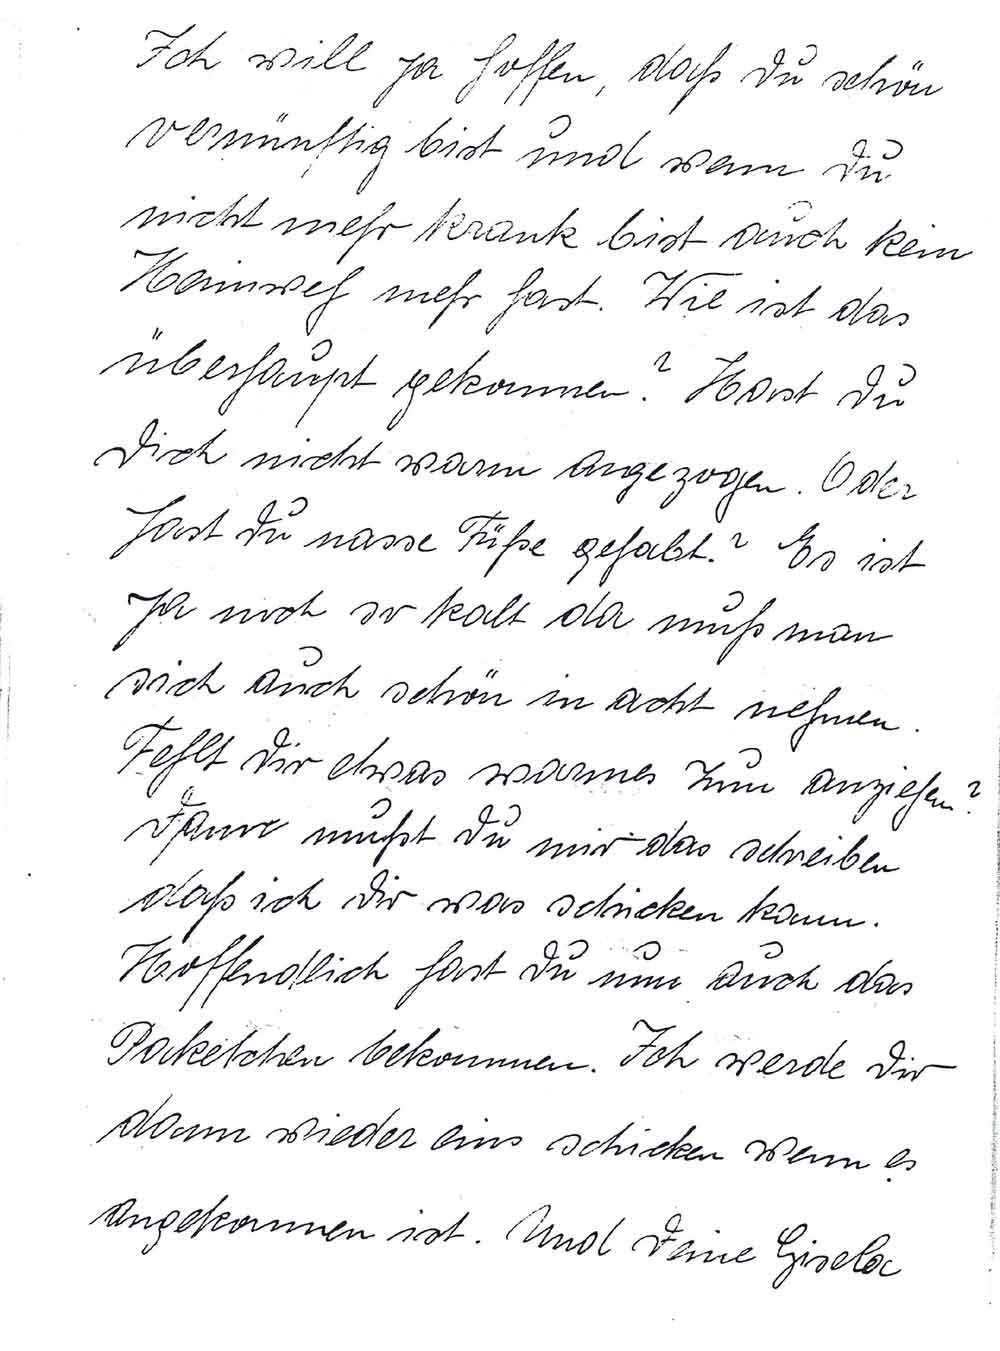 Ich will ja hoffen, daß Du schön
vernünftig bist und wenn Du
nicht mehr krank bist auch kein
Heimweh mehr hast. Wie ist das
überhaupt gekommen? Hast Du
Dich nicht warm angezogen. Oder
hast Du nasse Füße gehabt.? Es ist
ja noch so kalt da muß man
sich auch schön in acht nehmen.
Fehlt Dir etwas warmes zum anziehen?
Dann mußt Du mir das schreiben
daß ich Dir was schicken kann.
Hoffendlich hast Du nun auch das
Paketchen bekommen. Ich werde Dir
dann wieder eins schicken wenn es
angekommen ist. Und Deine Gisela